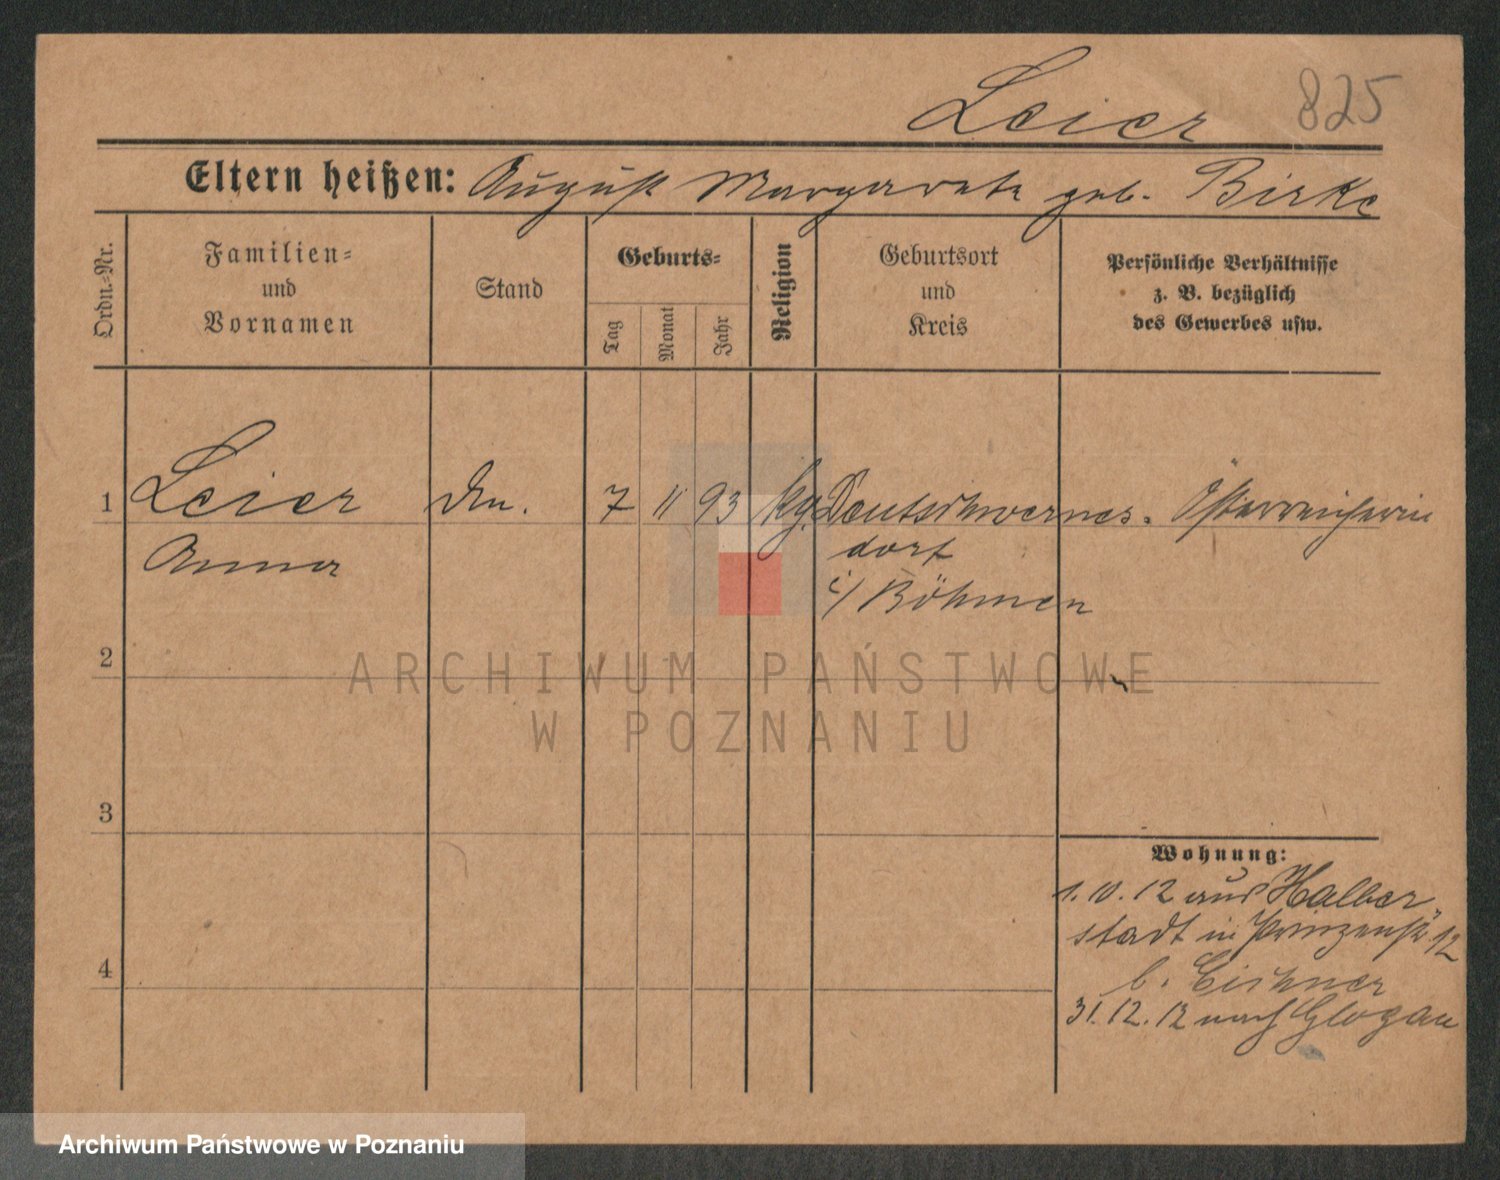 Leier 825
Eltern heißen: August Margarete geb. Birke
Ordn.-Nr.
Familien-
und
Vornamen
Stand
Geburts-
Tag
Monat
Jahr
Religion
Geburtsort
und
Kreis
Persönliche Verhältnisse
z. B. bezüglich
des Gewerbes usw.
1 Leier 7 11 93 kg. Deutschwernes- Österreicherin
Anna dorf
i/ Böhmen
2
3
4
Wohnung:
1.10.12 aus Halber-
stadt in Prinzenstr. 12
b. Eichner
31.12.12 nach Glogau
ARCHIWUM PAŃSTWOWE
W POZNANIU
Archiwum Państwowe w Poznaniu